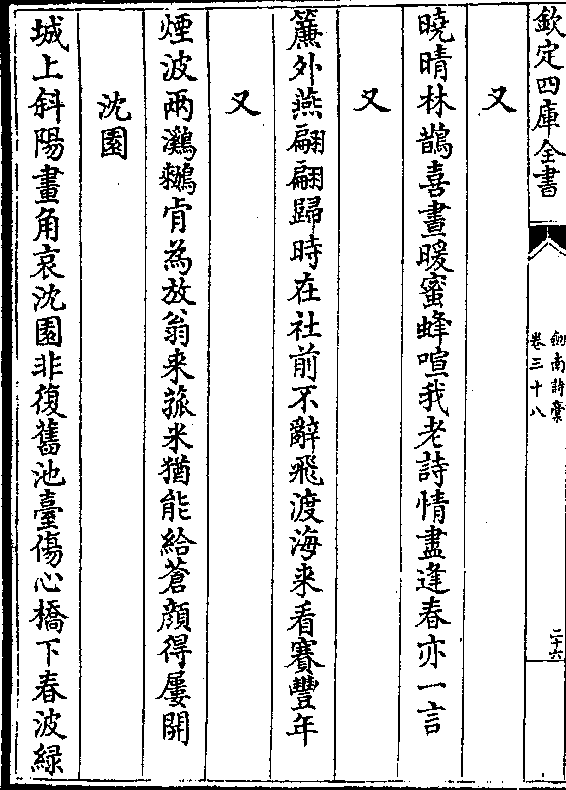 欽定四庫全書
劒南詩稾
卷三十八
二十六
又
曉晴林鵲喜晝暖蜜蜂喧我老詩情盡逢春亦一言
又
簾外燕翩翩歸時在社前不辭飛渡海来看賽豐年
又
煙波兩鸂𪆟肯為放翁来菰米猶能給蒼顔得屢開
沈園
城上斜陽畫角哀沈園非復舊池臺傷心橋下春波緑